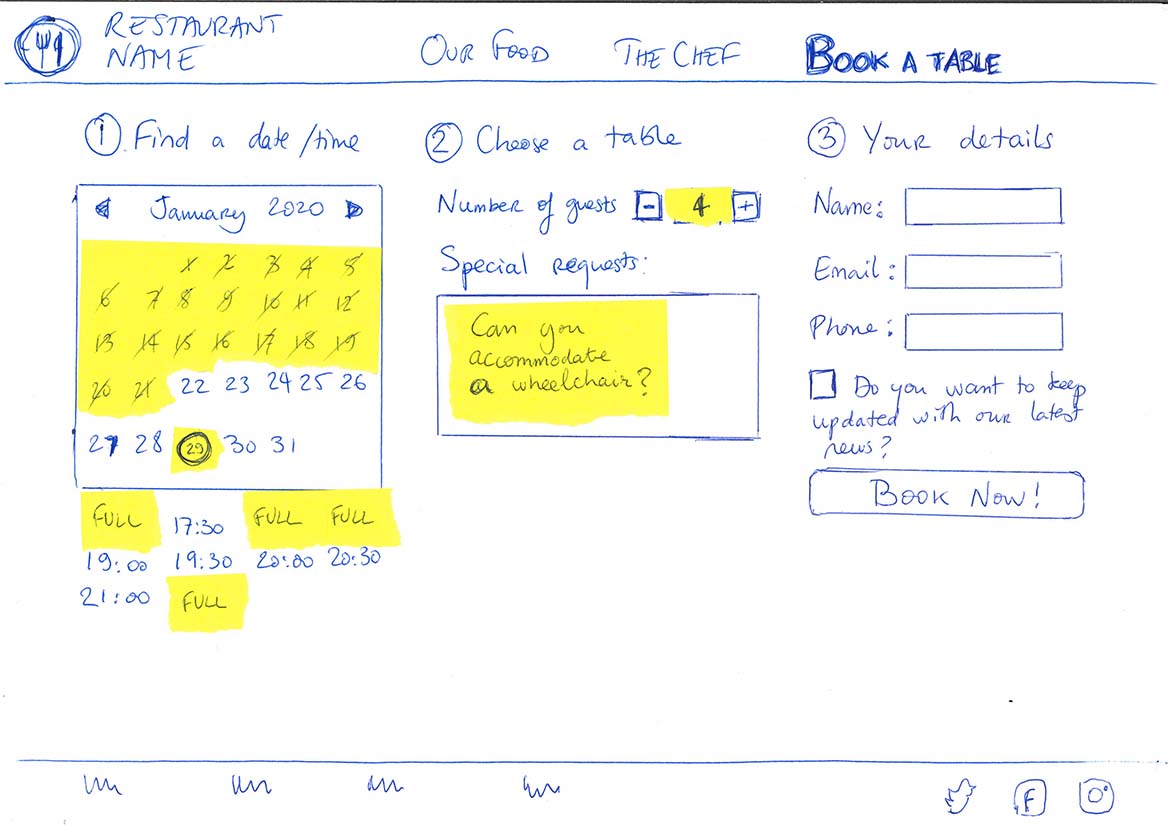 RESTAURANT
NAME
OUR FOOD
THE CHEF
BOOK A TABLE
1 Find a date/time
January 2020
1 2 3 4 5
6 7 8 9 10 11 12
13 14 15 16 17 18 19
20 21 22 23 24 25 26
27 28 29 30 31
FULL 17:30 FULL FULL
19:00 19:30 20:00 20:30
21:00 FULL
2 Choose a table
Number of guests - 4 +
Special requests:
Can you
accommodate
a wheelchair?
3 Your details
Name:
Email:
Phone:
Do you want to keep
updated with our latest
news?
BOOK NOW!
f